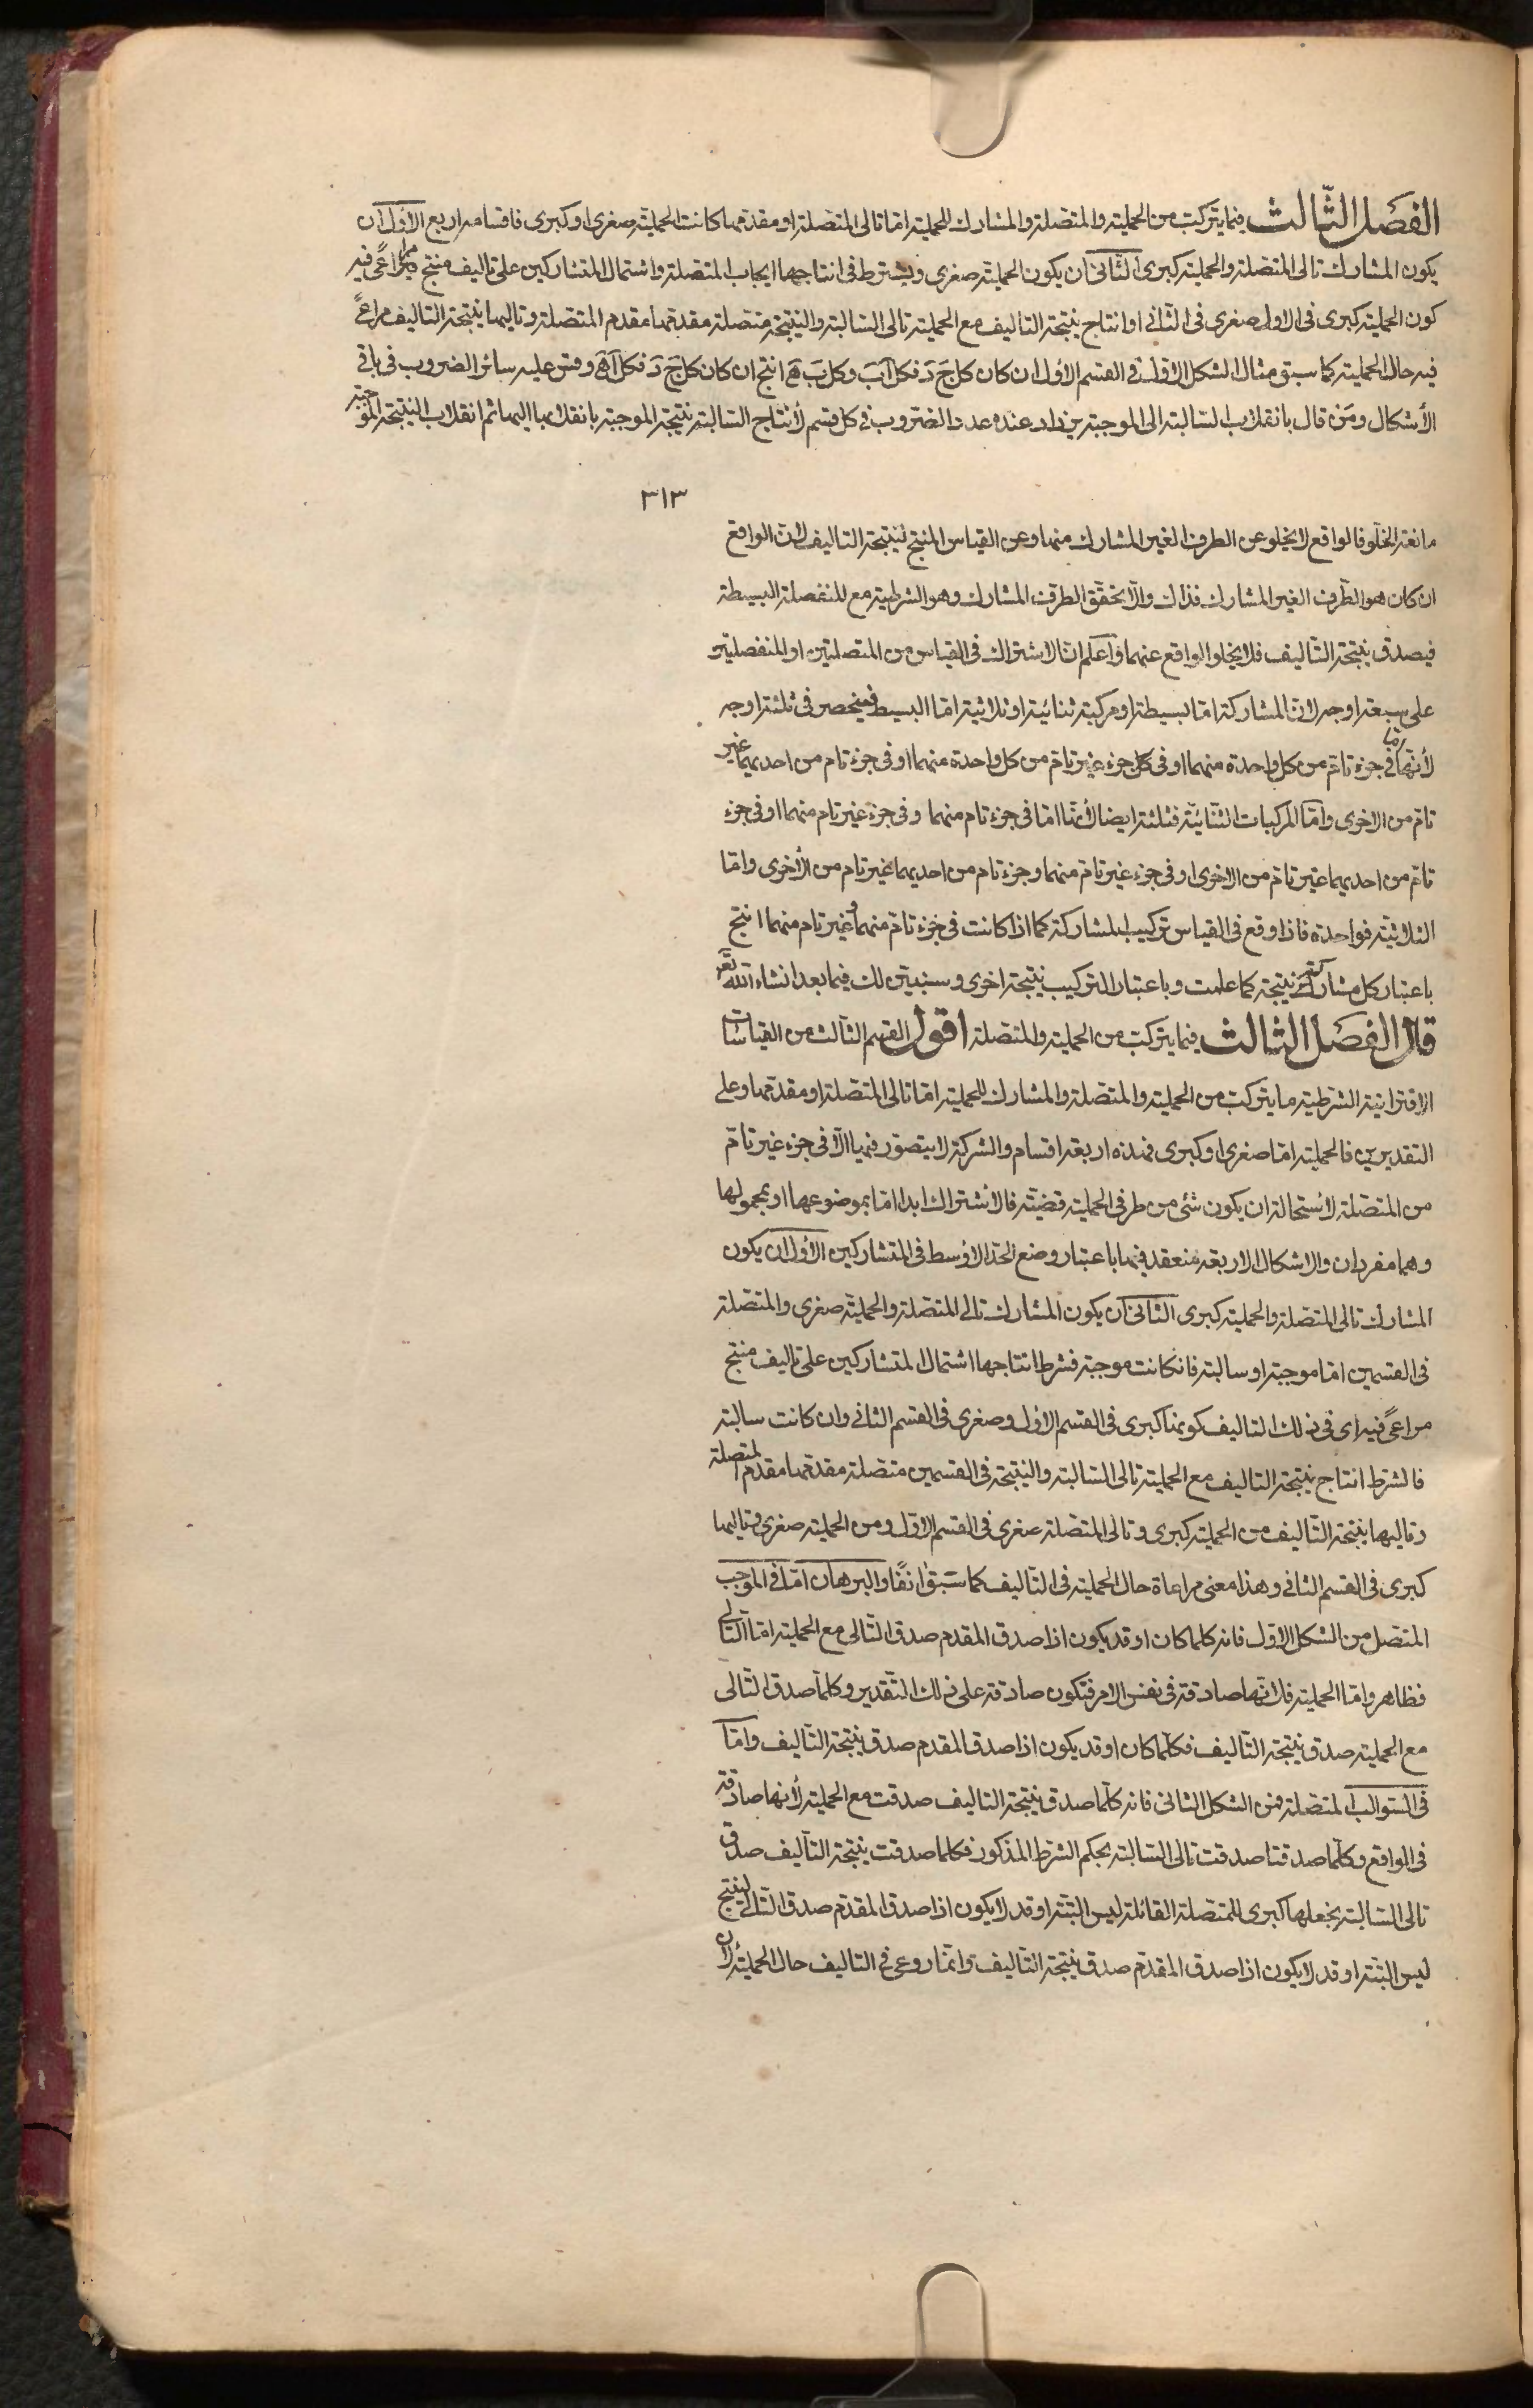 الفصل الثالث فيما يتركب من الحملية والمتصلة والمشارك للحملية اما تالى المتصلة او مقدمها كانت الحملية صغرى او كبرى فاقسامه اربع الأول ان
يكون المشارك تالى المتصلة والحملية كبرى الثانى ان يكون الحملية صغرى ويشترط فى انتاجها ايجاب المتصلة واشتمال المتشاركين على تاليف منتج مراعى فيه
كون الحملية كبرى فى الاول صغرى فى الثانى او انتاج نتيجة التاليف مع الحملية تالى السالبة والنتيجة متصلة مقدمها مقدم المتصلة وتاليها نتيجة التاليف مراعى
فيه حال الحملية كما سبق مثال الشكل الاول فى القسم الأول ان كان كل ج د فكل آ ب وكل ب ه انتج ان كان كل ج د فكل آ ه وقس عليه سائر الضروب فى باقى
الأشكال ومن قال بانقلاب السالبة الى الموجبة يزداد عنده عدد الضروب فى كل قسم لأنتاج السالبة نتيجة الموجبة بانقلابها اليها ثم انقلاب النتيجة الموجبة
٣١٣
مانعة الخلو فالواقع لا يخلو عن الطرف الغير المشارك منها وعن القياس المنتج لنتيجة التاليف لان الواقع
ان كان هو الطرف الغير المشارك فذاك والا تحقق الطرف المشارك وهو الشرطية مع المنفصلة البسيطة
فيصدق نتيجة التأليف فلا يخلو الواقع عنهما واعلم ان الاشتراك فى القياس من المتصلتين او المنفصلتين
على سبعة اوجه لان المشاركة اما بسيطة او مركبة ثنائية او ثلاثية اما البسيط فينحصر فى ثلثة اوجه
لأنها اما فى جزء تام من كل واحدة منهما او فى كل جزء غير تام من كل واحدة منهما او فى جزء تام من احديهما غير
تام من الاخرى واما المركبات الثنائية فثلثة ايضا لأنها اما فى جزء تام منهما وفى جزء غير تام منهما او فى جزء
تام من احديهما غير تام من الاخرى او فى جزء غير تام منهما وجزء تام من احديهما غير تام من الأخرى واما
الثلاثية فواحدة فاذا وقع فى القياس تركيب المشاركة كما اذا كانت فى جزء تام منهما وغير تام منهما انتج
باعتبار كل مشاركة نتيجة كما علمت وباعتبار التركيب نتيجة اخرى وسنبين لك فيما بعد انشاء الله تع
قال الفصل الثالث فيما يتركب من الحملية والمتصلة اقول القسم الثالث من القياسات
الاقترانية الشرطية ما يتركب من الحملية والمتصلة والمشارك للحملية اما تالى المتصلة او مقدمها وعلى
التقديرين فالحملية اما صغرى او كبرى فهذه اربعة اقسام والشركة لا يتصور فيها الا فى جزء غير تام
من المتصلة لاستحالة ان يكون شئ من طرفى الحملية قضية فالأشتراك ابدا اما بموضوعها او بمحمولها
وهما مفردان والاشكال الاربعة منعقد فيها باعتبار وضع الحد الاوسط فى المتشاركين الأول ان يكون
المشارك تالى المتصلة والحملية كبرى الثانى ان يكون المشارك تالى المتصلة والحملية صغرى والمتصلة
فى القسمين اما موجبة او سالبة فان كانت موجبة فشرط انتاجها اشتمال المتشاركين على تاليف منتج
مراعى فيه اى فى ذلك التاليف كونها كبرى فى القسم الاول وصغرى فى القسم الثانى وان كانت سالبة
فالشرط انتاج نتيجة التاليف مع الحملية تالى السالبة والنتيجة فى القسمين متصلة مقدمها مقدم المتصلة
وتاليها نتيجة التأليف من الحملية كبرى وتالى المتصلة صغرى فى القسم الاول ومن الحملية صغرى وتاليها
كبرى فى القسم الثانى وهذا معنى مراعاة حال الحملية فى التأليف كما سبق انفا والبرهان اما فى الموجب
المتصل من الشكل الاول فانه كلما كان او قد يكون اذا صدق المقدم صدق التالى مع الحملية اما التالى
فظاهر واما الحملية فلانها صادقة فى نفس الامر فتكون صادقة على ذلك التقدير وكلما صدق التالى
مع الحملية صدق نتيجة التأليف فكلما كان او قد يكون اذا صدق المقدم صدق نتيجة التأليف واما
فى السوالب المتصلة فمن الشكل الثانى فانه كلما صدق نتيجة التاليف صدقت مع الحملية لأنها صادقة
فى الواقع وكلما صدقتا صدقت تالى السالبة بحكم الشرط المذكور فكلما صدقت نتيجة التأليف صدق
تالى السالبة نجعلها كبرى للمتصلة القائلة ليس البتة او قد لا يكون اذا صدق المقدم صدق التالى لينتج
ليس البتة او قد لا يكون اذا صدق المقدم صدق نتيجة التأليف وانما روعى فى التاليف حال الحملية لان